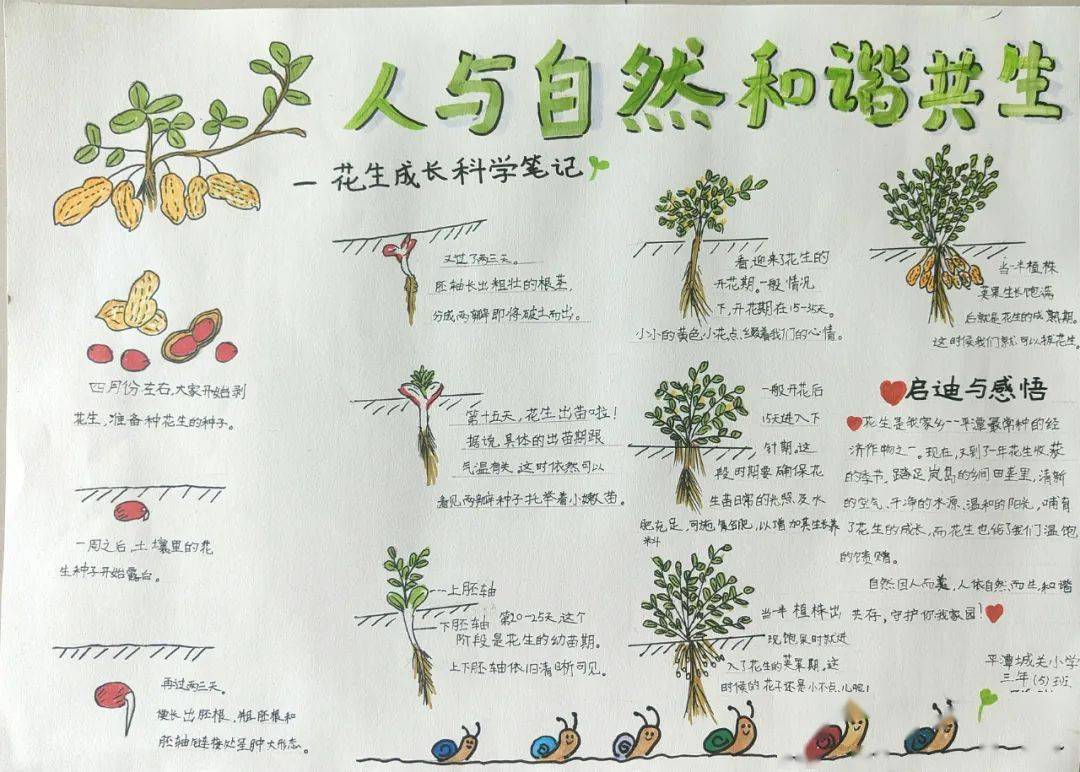 人与自然和谐共生
一花生成长科学笔记
四月份左右,大家开始剥
花生,准备种花生的种子。
一周之后,土壤里的花
生种子开始露白。
再过两三天。
便长出胚根,粗胚根和
胚轴链接处呈肿大形态。
又过了两三天。
胚轴长出粗壮的根茎,
分成两瓣即将破土而出。
第十五天,花生出苗啦!
据说具体的出苗期跟
气温有关,这时依然可以
看见两瓣种子托举着小嫩苗。
上胚轴
下胚轴
第20-25天这个
阶段是花生的幼苗期。
上下胚轴依旧清晰可见。
看,迎来了花生的
开花期。一般情况
下,开花期在15-35天。
小小的黄色小花点缀着我们的心情。
一般开花后
15天进入下
针期。这
段时期要确保花
生苗日常的光照及水
肥充足,可施复合肥,以增加其生长养
料
当一半植株出
现饱果时就进
入了花生的荚果期,这
时候的花子还是小不点儿呢!
当一半植株
荚果生长饱满
后就是花生的成熟期。
这时候我们就可以拔花生。
启迪与感悟
花生是我家乡一平潭最常种的经
济作物之一。现在,又到了一年花生收获
的季节。踏足岚岛的乡间田垄里,清新
的空气、干净的水源、温和的阳光,哺育
了花生的成长,而花生也给了我们温饱
的馈赠。
自然因人而美,人依自然而生,和谐
共存,守护你我家园!
平潭城关小学
三年(5)班